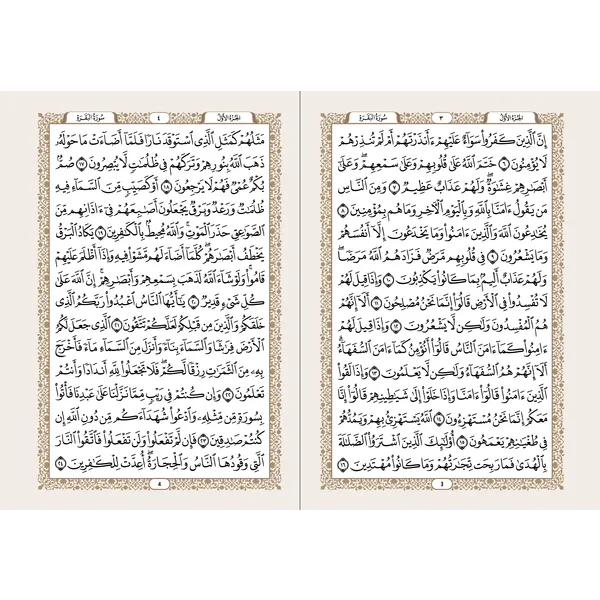 الجزء الأول ٣ سورة البقرة
إِنَّ ٱلَّذِينَ كَفَرُوا۟ سَوَآءٌ عَلَيْهِمْ ءَأَنذَرْتَهُمْ أَمْ لَمْ تُنذِرْهُمْ
لَا يُؤْمِنُونَ ٦ خَتَمَ ٱللَّهُ عَلَىٰ قُلُوبِهِمْ وَعَلَىٰ سَمْعِهِمْ ۖ وَعَلَىٰٓ
أَبْصَٰرِهِمْ غِشَٰوَةٌ ۖ وَلَهُمْ عَذَابٌ عَظِيمٌ ٧ وَمِنَ ٱلنَّاسِ
مَن يَقُولُ ءَامَنَّا بِٱللَّهِ وَبِٱلْيَوْمِ ٱلْءَاخِرِ وَمَا هُم بِمُؤْمِنِينَ ٨
يُخَٰدِعُونَ ٱللَّهَ وَٱلَّذِينَ ءَامَنُوا۟ وَمَا يَخْدَعُونَ إِلَّآ أَنفُسَهُمْ
وَمَا يَشْعُرُونَ ٩ فِى قُلُوبِهِم مَّرَضٌ فَزَادَهُمُ ٱللَّهُ مَرَضًا ۖ
وَلَهُمْ عَذَابٌ أَلِيمٌۢ بِمَا كَانُوا۟ يَكْذِبُونَ ١٠ وَإِذَا قِيلَ لَهُمْ
لَا تُفْسِدُوا۟ فِى ٱلْأَرْضِ قَالُوٓا۟ إِنَّمَا نَحْنُ مُصْلِحُونَ ١١ أَلَآ إِنَّهُمْ
هُمُ ٱلْمُفْسِدُونَ وَلَٰكِن لَّا يَشْعُرُونَ ١٢ وَإِذَا قِيلَ لَهُمْ
ءَامِنُوا۟ كَمَآ ءَامَنَ ٱلنَّاسُ قَالُوٓا۟ أَنُؤْمِنُ كَمَآ ءَامَنَ ٱلسُّفَهَآءُ ۗ
أَلَآ إِنَّهُمْ هُمُ ٱلسُّفَهَآءُ وَلَٰكِن لَّا يَعْلَمُونَ ١٣ وَإِذَا لَقُوا۟
ٱلَّذِينَ ءَامَنُوا۟ قَالُوٓا۟ ءَامَنَّا وَإِذَا خَلَوْا۟ إِلَىٰ شَيَٰطِينِهِمْ قَالُوٓا۟ إِنَّا
مَعَكُمْ إِنَّمَا نَحْنُ مُسْتَهْزِءُونَ ١٤ ٱللَّهُ يَسْتَهْزِئُ بِهِمْ وَيَمُدُّهُمْ
فِى طُغْيَٰنِهِمْ يَعْمَهُونَ ١٥ أُو۟لَٰٓئِكَ ٱلَّذِينَ ٱشْتَرَوُا۟ ٱلضَّلَٰلَةَ
بِٱلْهُدَىٰ فَمَا رَبِحَت تِّجَٰرَتُهُمْ وَمَا كَانُوا۟ مُهْتَدِينَ ١٦
3
الجزء الأول ٤ سورة البقرة
مَثَلُهُمْ كَمَثَلِ ٱلَّذِى ٱسْتَوْقَدَ نَارًا فَلَمَّآ أَضَآءَتْ مَا حَوْلَهُۥ
ذَهَبَ ٱللَّهُ بِنُورِهِمْ وَتَرَكَهُمْ فِى ظُلُمَٰتٍ لَّا يُبْصِرُونَ ١٧ صُمٌّۢ
بُكْمٌ عُمْىٌ فَهُمْ لَا يَرْجِعُونَ ١٨ أَوْ كَصَيِّبٍ مِّنَ ٱلسَّمَآءِ فِيهِ
ظُلُمَٰتٌ وَرَعْدٌ وَبَرْقٌ يَجْعَلُونَ أَصَٰبِعَهُمْ فِىٓ ءَاذَانِهِم مِّنَ
ٱلصَّوَٰعِقِ حَذَرَ ٱلْمَوْتِ ۚ وَٱللَّهُ مُحِيطٌۢ بِٱلْكَٰفِرِينَ ١٩ يَكَادُ ٱلْبَرْقُ
يَخْطَفُ أَبْصَٰرَهُمْ ۖ كُلَّمَآ أَضَآءَ لَهُم مَّشَوْا۟ فِيهِ وَإِذَآ أَظْلَمَ عَلَيْهِمْ
قَامُوا۟ ۚ وَلَوْ شَآءَ ٱللَّهُ لَذَهَبَ بِسَمْعِهِمْ وَأَبْصَٰرِهِمْ ۚ إِنَّ ٱللَّهَ عَلَىٰ
كُلِّ شَىْءٍ قَدِيرٌ ٢٠ يَٰٓأَيُّهَا ٱلنَّاسُ ٱعْبُدُوا۟ رَبَّكُمُ ٱلَّذِى
خَلَقَكُمْ وَٱلَّذِينَ مِن قَبْلِكُمْ لَعَلَّكُمْ تَتَّقُونَ ٢١ ٱلَّذِى جَعَلَ لَكُمُ
ٱلْأَرْضَ فِرَٰشًا وَٱلسَّمَآءَ بِنَآءً وَأَنزَلَ مِنَ ٱلسَّمَآءِ مَآءً فَأَخْرَجَ
بِهِۦ مِنَ ٱلثَّمَرَٰتِ رِزْقًا لَّكُمْ ۖ فَلَا تَجْعَلُوا۟ لِلَّهِ أَندَادًا وَأَنتُمْ
تَعْلَمُونَ ٢٢ وَإِن كُنتُمْ فِى رَيْبٍ مِّمَّا نَزَّلْنَا عَلَىٰ عَبْدِنَا فَأْتُوا۟
بِسُورَةٍ مِّن مِّثْلِهِۦ وَٱدْعُوا۟ شُهَدَآءَكُم مِّن دُونِ ٱللَّهِ إِن
كُنتُمْ صَٰدِقِينَ ٢٣ فَإِن لَّمْ تَفْعَلُوا۟ وَلَن تَفْعَلُوا۟ فَٱتَّقُوا۟ ٱلنَّارَ
ٱلَّتِى وَقُودُهَا ٱلنَّاسُ وَٱلْحِجَارَةُ ۖ أُعِدَّتْ لِلْكَٰفِرِينَ ٢٤
4